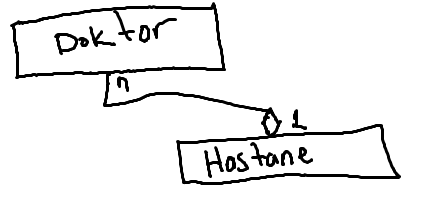 Doktor
n
1
Hastane